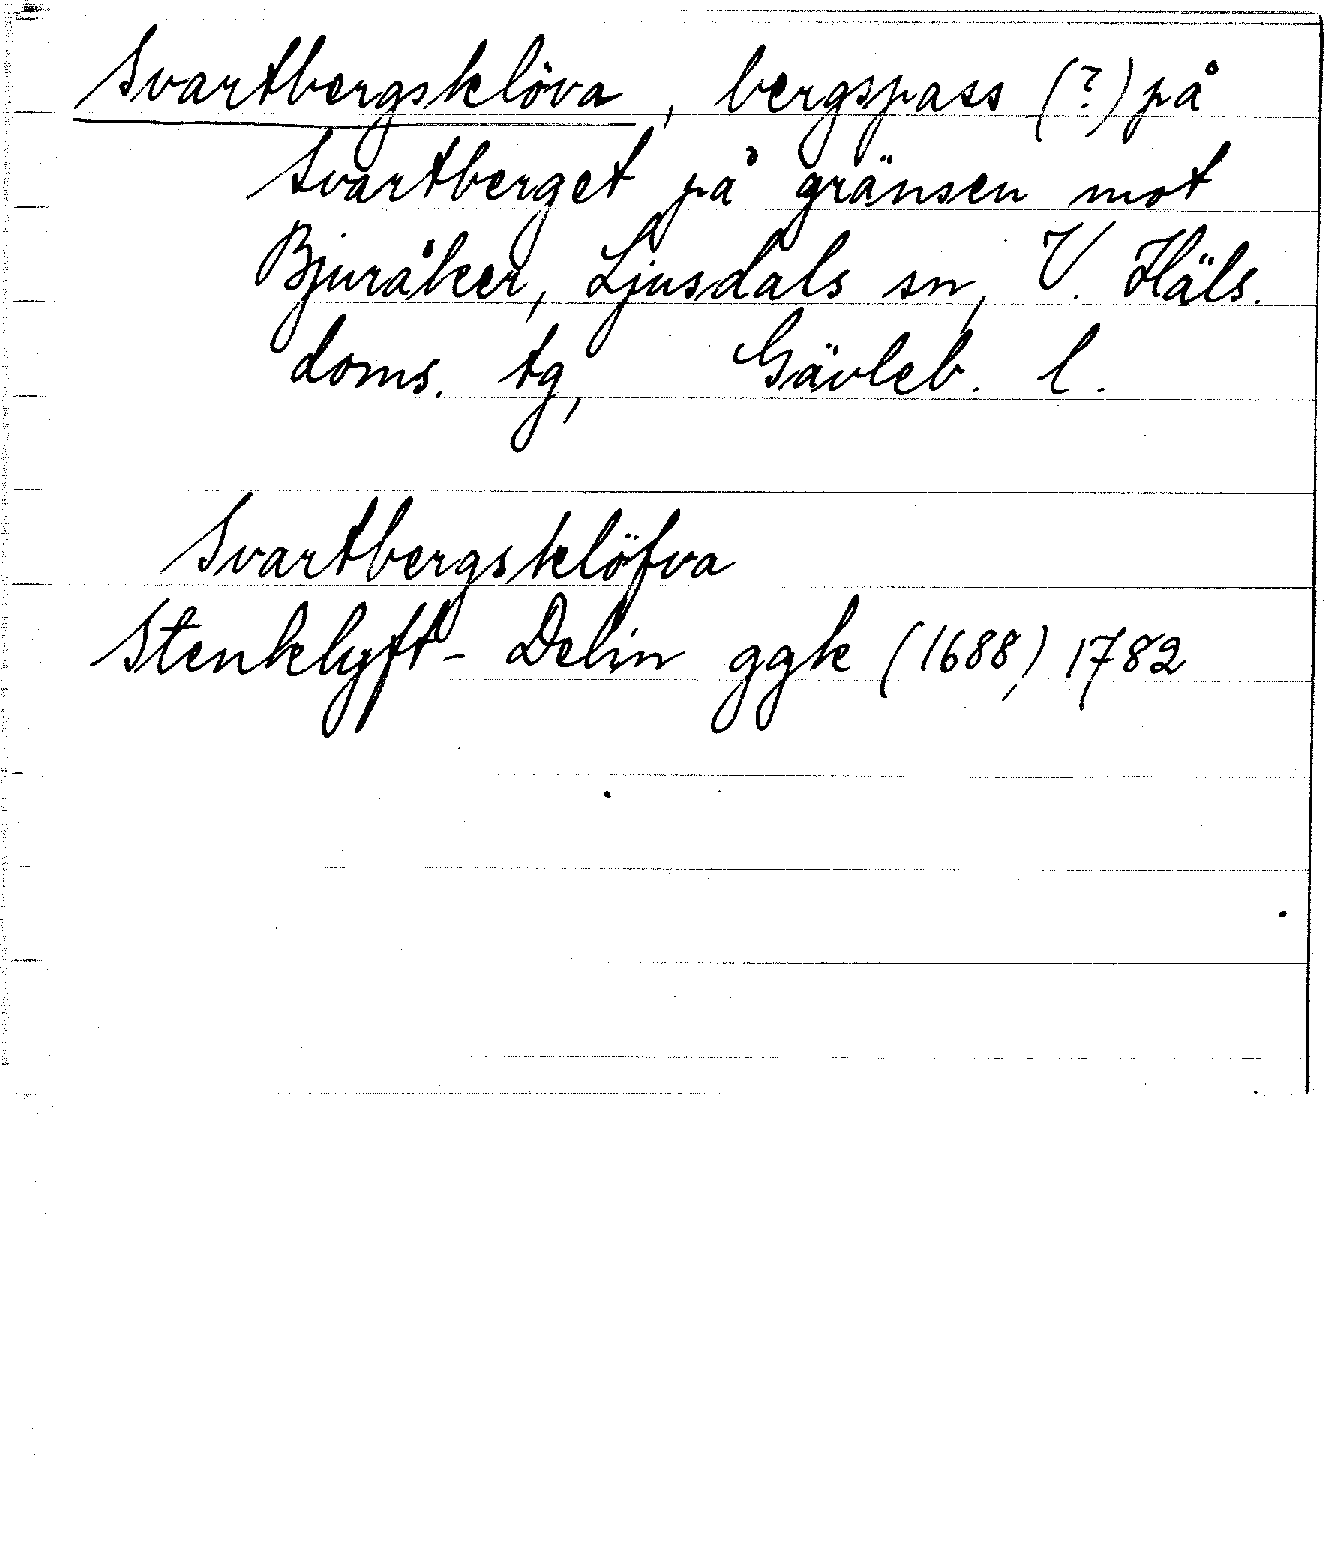 Svartbergsklöva, bergspass (?) på
Svartberget på gränsen mot
Bjuråker, Ljusdals sn, V. Häls.
doms. tg, Gävleb. l.
Svartbergsklöfva
Stenklyft - Delin ggk (1688) 1782